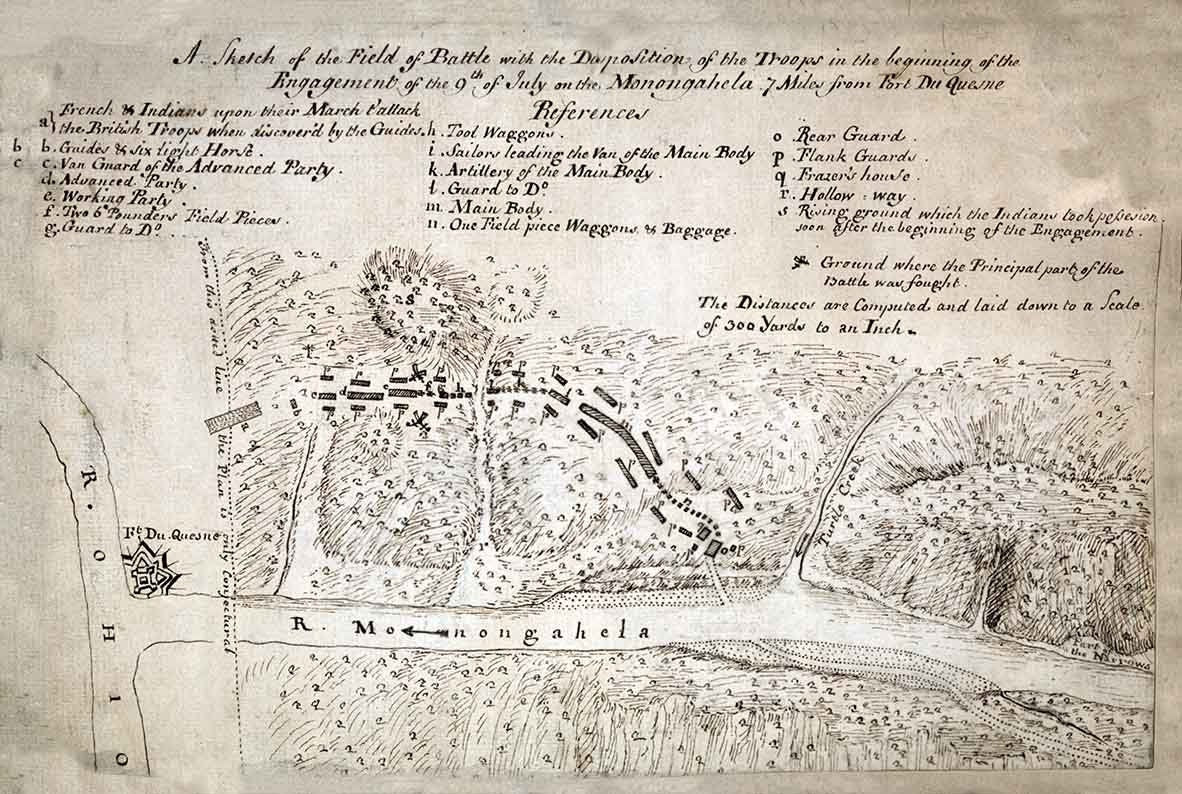 A Sketch of the Field of Battle with the Disposition of the Troops in the beginning of the
Engagement of the 9th of July on the Monongahela 7 Miles from Fort Du Quesne
References
a} French & Indians upon their March t'attack
the British Troops when discover'd by the Guides.
b b. Guides & six light Horse.
c c. Van Guard of the Advanced Party.
d. Advanced Party.
e. Working Party.
f. Two 6 Pounders Field Pieces.
g. Guard to Do.
h. Tool Waggons.
i. Sailors leading the Van of the Main Body
k. Artillery of the Main Body.
l. Guard to Do
m. Main Body.
n. One Field piece Waggons & Baggage.
o Rear Guard.
p. Flank Guards.
q. Frazer's house.
r. Hollow : way.
s Rising ground which the Indians took possesion
soon after the beginning of the Engagement.
Ground where the Principal part of the
Battle was fought.
The Distances are Computed and laid down to a Scale
of 300 Yards to an Inch.
From this line the Plan is only conjectured
R. OHIO
Ft. Du Quesne
R. Monongahela
Turtle Creek
Part of
the Narrows